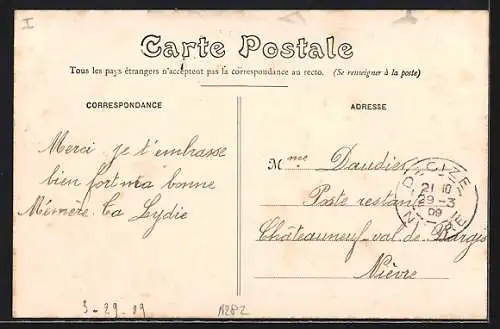 I
Carte Postale
Tous les pays étrangers n'acceptent pas la correspondance au recto. (Se renseigner à la poste)
CORRESPONDANCE
ADRESSE
Merci je t'embrasse
bien fort ma bonne
Mémère. Ta Lydie
Mme Daudier
Poste restante
Châteauneuf-val-de-Bargis
Nièvre
DECIZE
21 10
29-3
09
NIÈVRE
3-29-09
1282